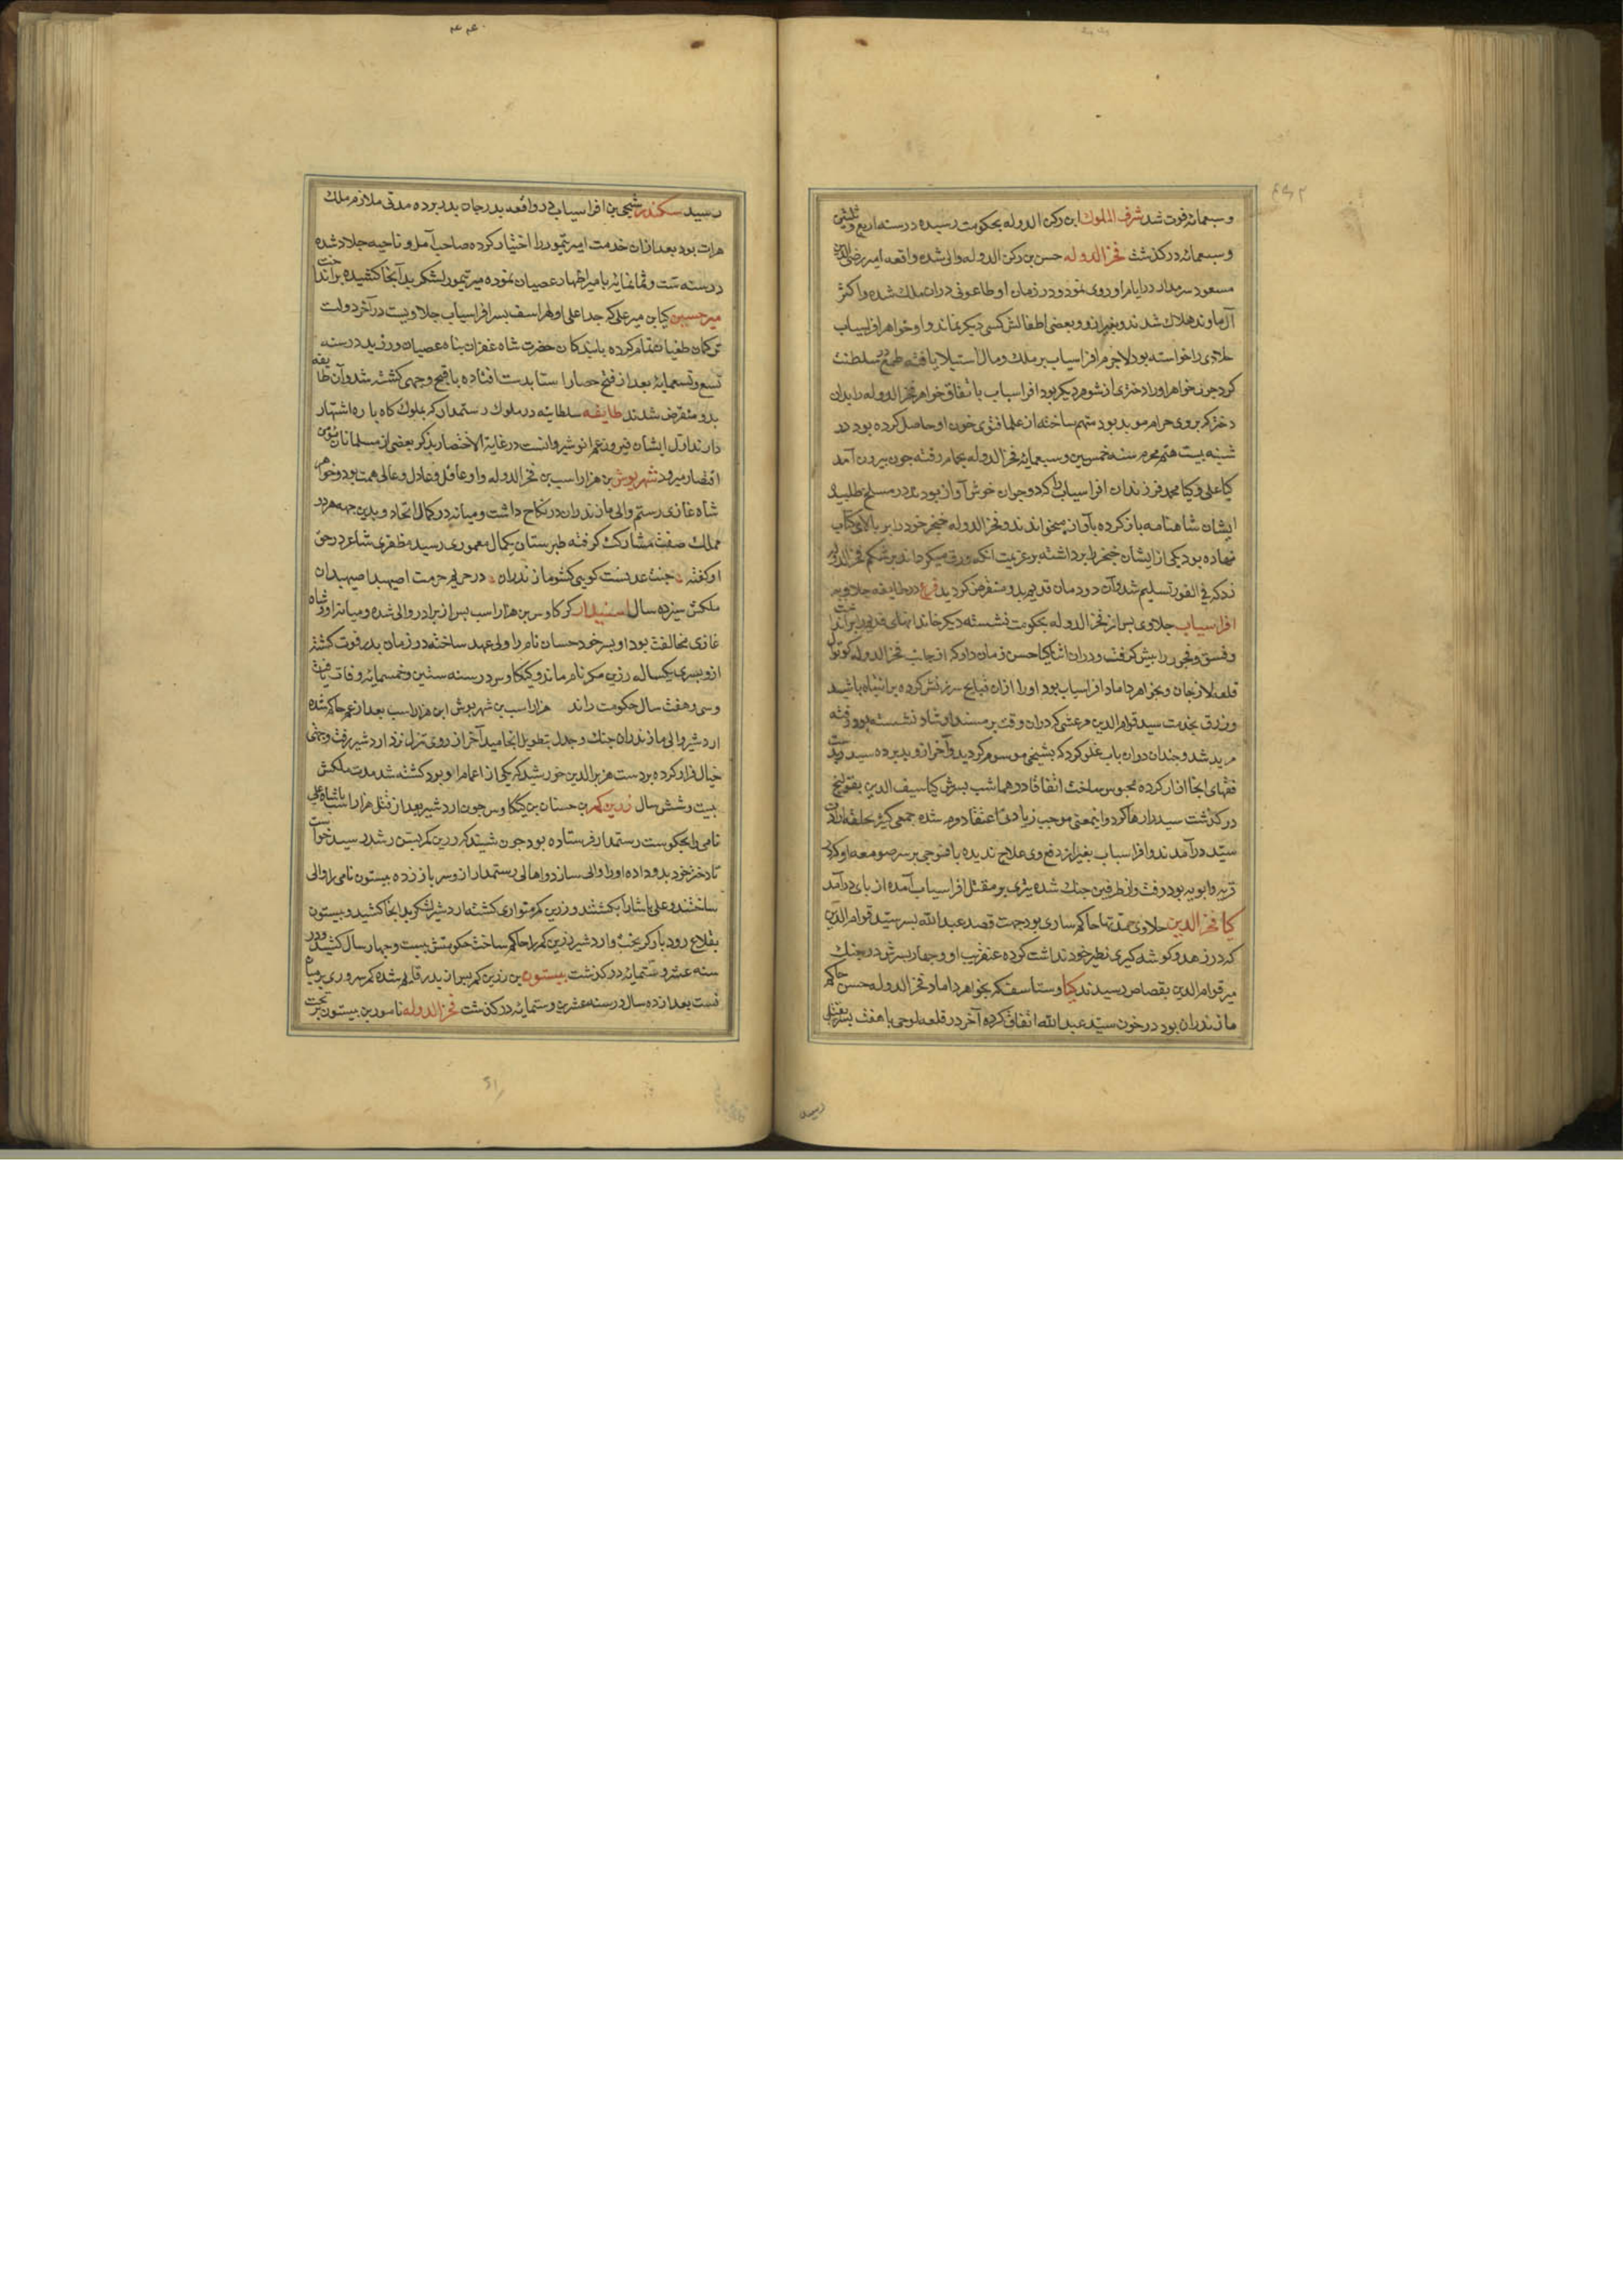 وسبعمائه فوت شد شرف الملوك ابن ركن الدوله بحكومت رسيده در سنه اربع وثلثين
وسبعمائه در كذشت فخر الدوله حسن بن ركن الدوله والى شده واقعه امير
مسعود سربدار در ايام او روى نمود و در زمان او طاعونى دران ملك شده و اكثر
آل باوند هلاك شدند و بغير ازو و بعضى اطفالش كسى ديكر نماند و او خواهر افراسياب
جلاوى را خواسته بود لاجرم افراسياب بر ملك و مال استيلا يافته طمع در سلطنت
كرد چون خواهر او را دخترى از شوهر ديكر بود افراسياب باتفاق خواهر فخر الدوله را بدان
دختر كه بروى حرام مويد بود متهم ساخته از علما فتوى خون او حاصل كرده بود در
شنبه بيست هفتم محرم سنه خمسين و سبعمايه فخر الدوله بحمام رفته چون بيرون آمد
كيا على و كيا محمد فرزندان افراسياب را كه دو جوان خوش آواز بودند در مسلخ طلبيد
ايشان شاهنامه باز كرده بآواز ميخواندند و فخر الدوله خنجر خود را بر بالاى كتاب
نهاده بود يكى از ايشان خنجر را برداشته بر عزيمت آنكه ورق ميكرداند بر شكم فخر الدوله
زد كه فى الفور تسليم شد و آن دودمان قديم بدو منقرض كرديد فرع در طايفه جلاويه
افراسياب جلاوى پس از فخر الدوله بحكومت نشسته ديكر خاندانهاى قديم را برانداخت
و فسق و فجور را پيش كرفت و دران اثنا كيا حسن زمان دار كه از جانب فخر الدوله كوتوال
قلعه لارجان و بخواهر داماد افراسياب بود او را ازان قبايح سرزنش كرده
وزرق بخدمت سيد قوام الدين مرعشى كه دران وقت بر مسند ارشاد نشسته بود رفته
مريد شد و چندان دران باب غلو كرد كه بشيخى موسوم كرديد و آخر ازو
فقهاى انجا انكار كرده محبوس ساخت اتفاقا در هما شب پسرش كيا سيف الدين بقولنج
در كذشت سيد را رها كرد و اينمعنى موجب زيادتى اعتقاد مردم شده جمعى كثير بحلقه ارادت
سيد در آمدند و افراسياب بغير از دفع وى علاج نديده با فوجى بر سر صومعه او كه در
قريه وابويه بود رفت و از طرفين جنك شده تيرى بر مقتل افراسياب آمده از پاى در آمد
كيا فخر الدين جلاوى مدتها حاكم سارى بود جهت قصد عبد الله پسر سيد قوام الدين
كه در زهد و كوشه كيرى نظير خود نداشت كرده عنقريب او و چهار پسرش در جنك
مير قوام الدين بقصاص رسيدند كيا وستاسف كه بخواهر داماد فخر الدوله حسن حاكم
مازندران بود در خون سيد عبد الله اتفاق كرده آخر در قلعه توجى با هفت پسر بقتل
رسيد سكندر شيخى بن افراسياب در واقعه پدر جان بدر برده مدتى ملازم ملك
هرات بود بعد ازان خدمت امير تيمور را اختيار كرده صاحب آمل و ناحيه جلاو شده
در سنه ست و ثمانمايه با مير اظهار عصيان نموده مير تيمور لشكر بدآنجا كشيده برانداخت
مير حسين كيا بن مير على كه جد اعلى او لهراسف پسر افراسياب جلاويست در آخر دولت
تركمان طغيان تمام كرده با بندكان حضرت شاه غفران پناه عصيان ورزيد در سنه
تسع و تسعمايه بعد از فتح حصار استا بدست افتاده باقبح وجهى كشته شد و آن طايفه
بدو منقرض شدند طايفه سلطانيه در ملوك رستمدار كه بملوك كاو باره اشتهار
دارند اول ايشان فيروز عم انوشيروانست در غاية الاختصار بذكر بعضى از مسلمانان
اقتصار ميرود شهريوش بن هزاراسب بن فخر الدوله واو عاقل و عادل و عالى همت بود و خواهر
شاه غازى رستم والى مازندران در نكاح داشت و ميانه در كمال اتحاد و بدين جهه هر دو
مملكت صفت مشاركت كرفته طبرستان بكمال معمورى رسيد مظفرى شاعر در حق
او كفته جنت عدنست كويى كشور مازندران در حريم حرمت اصپهبد اصپهبدان
ملكش سيزده سال استندار كيكاوس بن هزاراسب پس از برادر والى شده و ميانه او و شاه
غازى مخالفت بود او پسر خود حسان نام را ولى عهد ساخته در زمان پدر فوت كشته
ازو پسرى يكساله زرين كمر نام ماند و كيكاوس در سنه ستين و خمسمايه وفات يافت
و سى و هفت سال حكومت راند هزاراسب بن شهريوش ابن هزاراسب بعد از عم حاكم شده
اردشير والى مازندران جنك و جدل بتطويل انجاميد آخر از روى تنزل نزد اردشير رفت و جمعى
خيال فرار كرده بر دست هزبر الدين خورشيد كه يكى از اعمام او بود كشته شد مدت ملكش
بيست و شش سال زرين كمر بن حسنان بن كيكاوس چون اردشير بعد از قتل هزاراسب پاشاه على
نامى را بحكومت رستمدار فرستاده بود چون شنيد كه زرين كمر بسن رشد رسيد خواست
تا دختر خود بدو داده او را والى سازد و اهالى رستمدار ازو سر باز زده بيستون نامى را والى
ساختند و على پاشا را بكشتند و زرين كمر متوارى كشته اردشير لشكر بدانجا كشيد و بيستون
بقلاع رودبار كريخت و اردشير زرين كمر را حاكم ساخت حكومتش بيست و چهار سال كشيد و در
سنه عشر و ستمايه در كذشت بيستون بن زرين كمر پس از پدر قايم شده كمر سرورى بر ميان
بست بعد از ده سال در سنه عشرين و ستمايه در كذشت فخر الدوله نامور بن بيستون بتخت